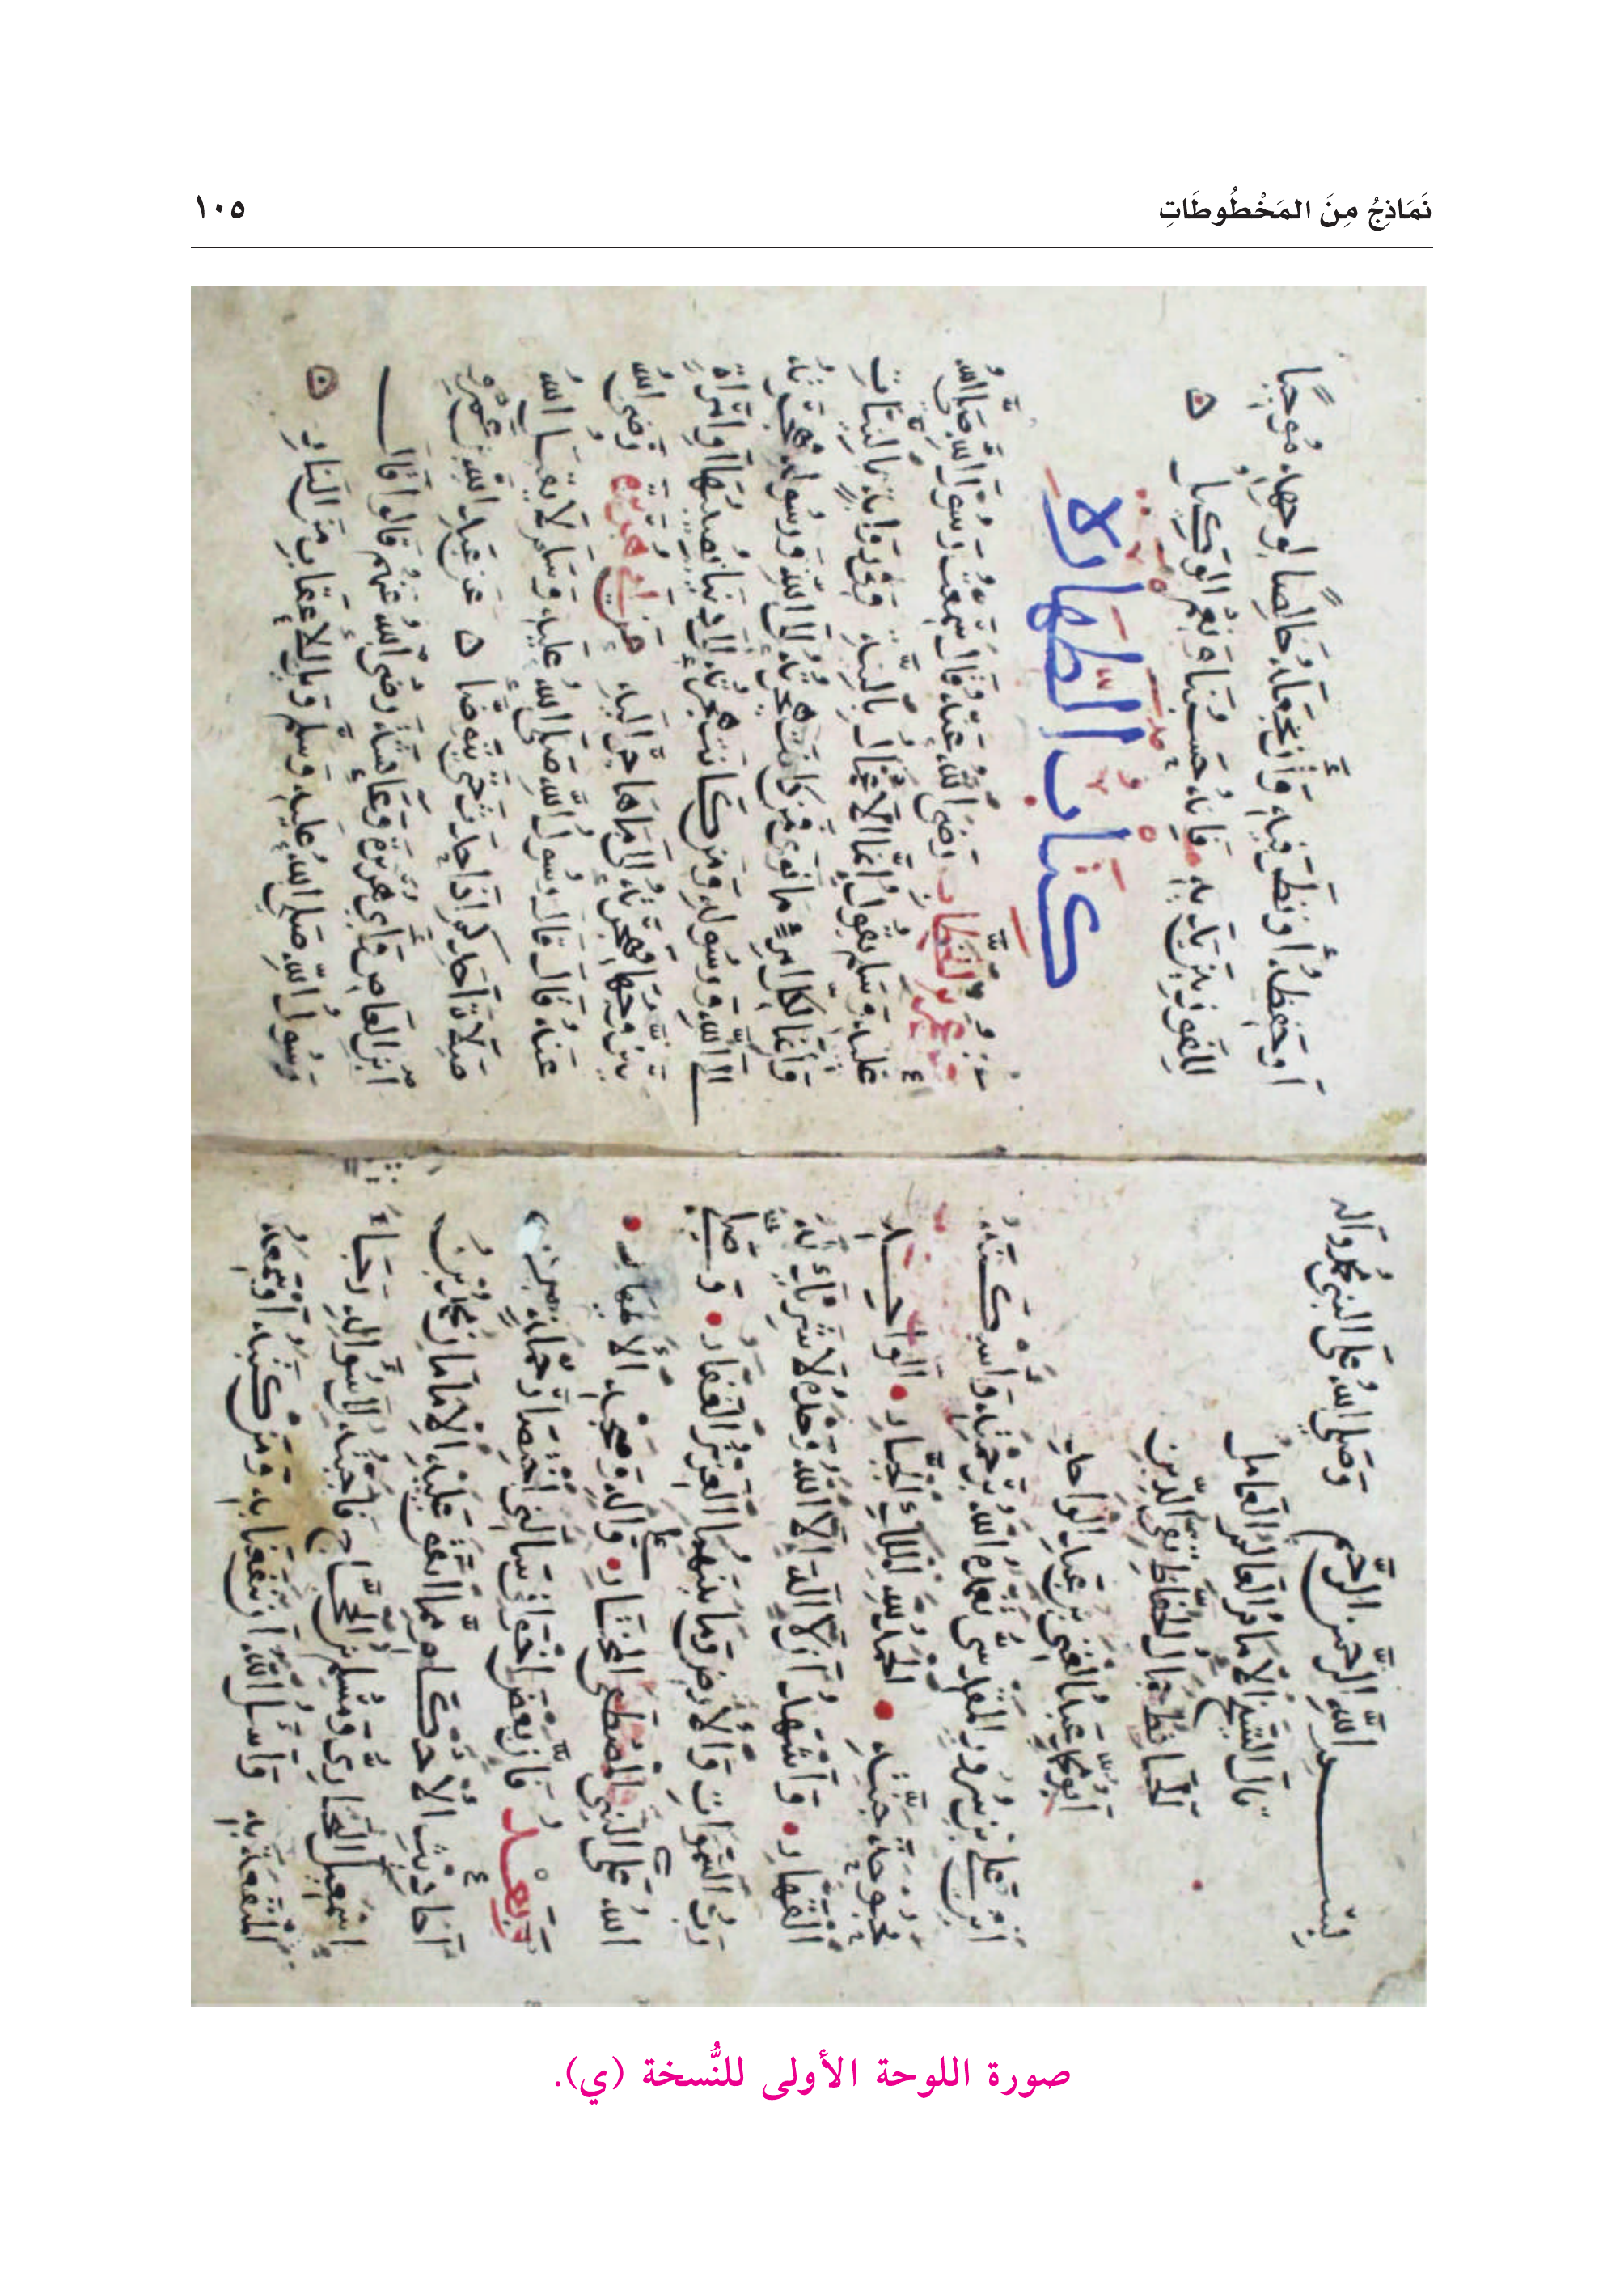 نَمَاذِجُ مِنَ المَخْطُوطَاتِ
١٠٥
بسم الله الرحمن الرحيم وصلى الله على النبي محمد وآله
قال الشيخ الإمام العالم العامل
الحافظ جمال الحفاظ تقي الدين
أبو محمد عبد الغني بن عبد الواحد
ابن علي بن سرور المقدسي تغمده الله برحمته وأسكنه
بحبوحة جنته الحمد لله الملك الجبار الواحد
القهار وأشهد أن لا إله إلا الله وحده لا شريك له
رب السموات والأرض وما بينهما العزيز الغفار وصلى
الله على النبي المصطفى المختار وعلى آله وصحبه الأطهار
وبعد فإن بعض إخواني سألني اختصار جملة من
أحاديث الأحكام مما اتفق عليه الإمامان محمد بن
إسمعيل البخاري ومسلم بن الحجاج فأجبته لسؤاله رجاء
المنفعة به وأسأل الله أن ينفعنا به ومن كتبه أو سمعه
أو حفظه أو نظر فيه وأن يجعله خالصا لوجهه موجبا
للفوز لديه فإنه حسبنا ونعم الوكيل
كتاب الطهارة
عن عمر بن الخطاب رضي الله عنه قال سمعت رسول الله صلى الله
عليه وسلم يقول إنما الأعمال بالنية وفي رواية بالنيات
وإنما لكل امرئ ما نوى فمن كانت هجرته إلى الله ورسوله فهجرته
إلى الله ورسوله ومن كانت هجرته إلى دنيا يصيبها أو امرأة
يتزوجها فهجرته إلى ما هاجر إليه عن أبي هريرة رضي الله
عنه قال قال رسول الله صلى الله عليه وسلم لا يقبل الله
صلاة أحدكم إذا أحدث حتى يتوضأ عن عبد الله بن عمرو
ابن العاص وأبي هريرة وعائشة رضي الله عنهم قالوا قال
رسول الله صلى الله عليه وسلم ويل للأعقاب من النار
صورة اللوحة الأولى للنُّسخة (ي).